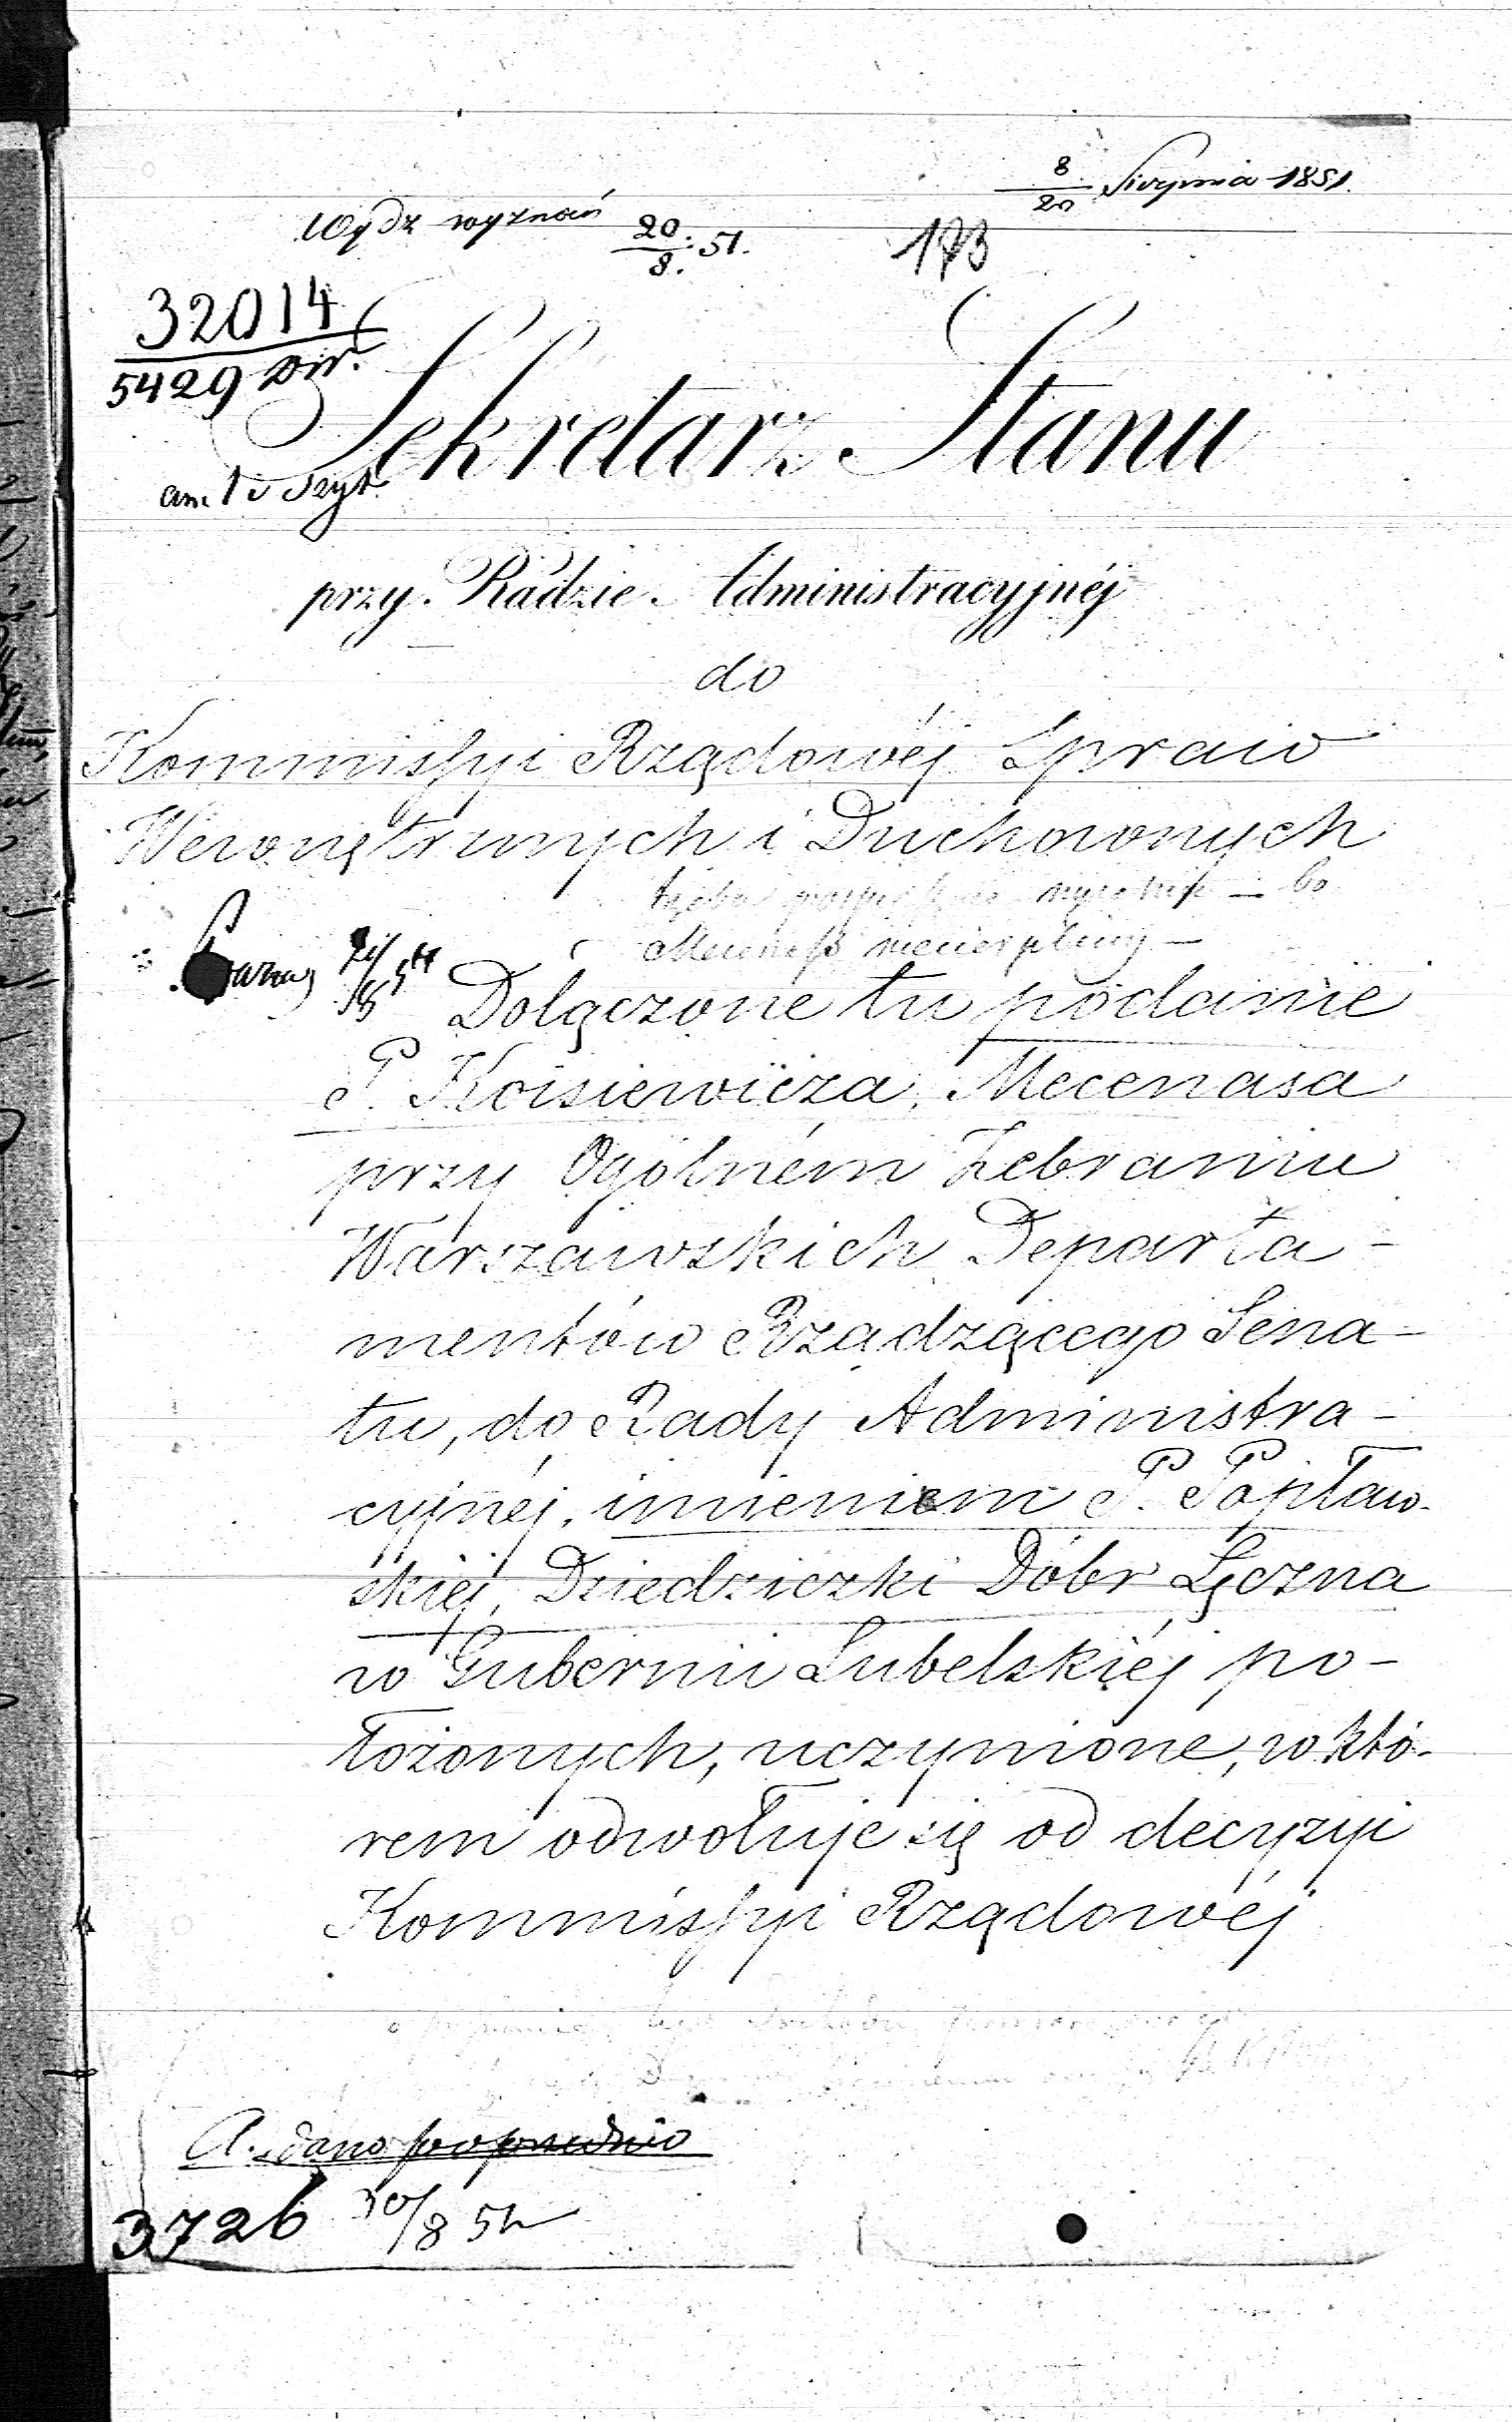 8/20 Sierpnia 1851.
Wydz wyznań 20/8. 51.
173
32014
5429 Dw.
Sekretarz Stanu
przy Radzie Administracyjnéj
do
Kommissyi Rządowéj Spraw
Wewnętrznych i Duchownych
bo
Mecenass niecierpliwy —
Dołączone tu podanie
P. Koisiewicza, Mecenasa
przy Ogólném Zebraniu
Warszawskich Departa-
mentów Rządzącego Sena-
tu, do Rady Administra-
cyjnéj, imieniem P. Popław-
skiéj, Dziedziczki Dóbr Łęczna
w Gubernii Lubelskiéj po-
łożonych, uczynione, w któ-
rem odwołuje się od decyzyi
Kommissyi Rządowéj
A. dano poprzednio
3726 30/8 51